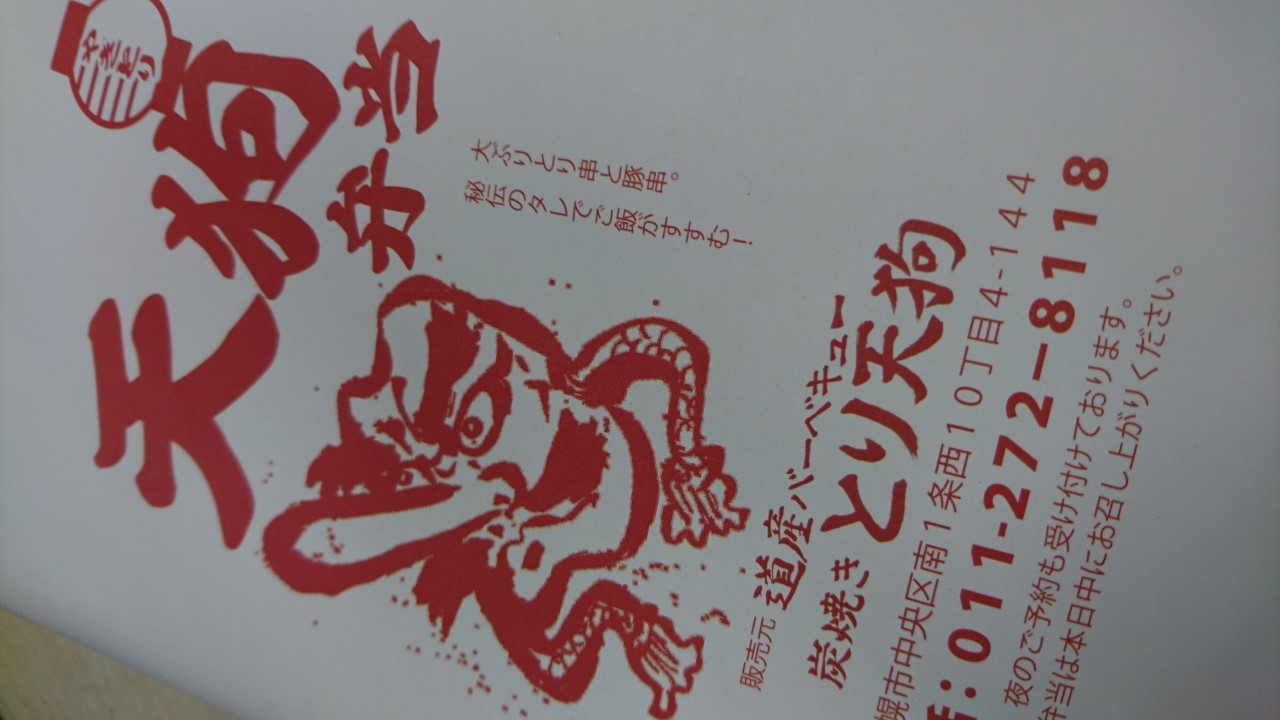 やきとり
天狗
弁当
大ぶりとり串と豚串。
秘伝のタレでご飯がすすむ！
販売元 道産バーベキュー
炭焼き とり天狗
幌市中央区南1条西10丁目4-144
話：011-272-8118
夜のご予約も受け付けております。
弁当は本日中にお召し上がりください。